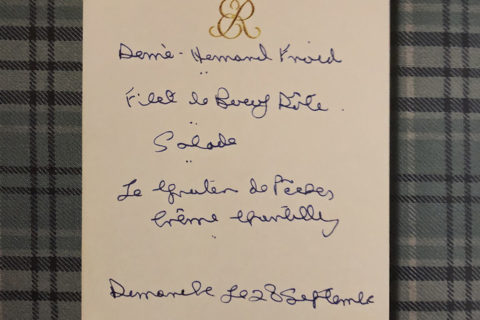 ER
Demi-Homard Froid
Filet de Boeuf Rôti
Salade
Le Gratin de Pêches
Crème Chantilly
Dimanche le 28 Septembre